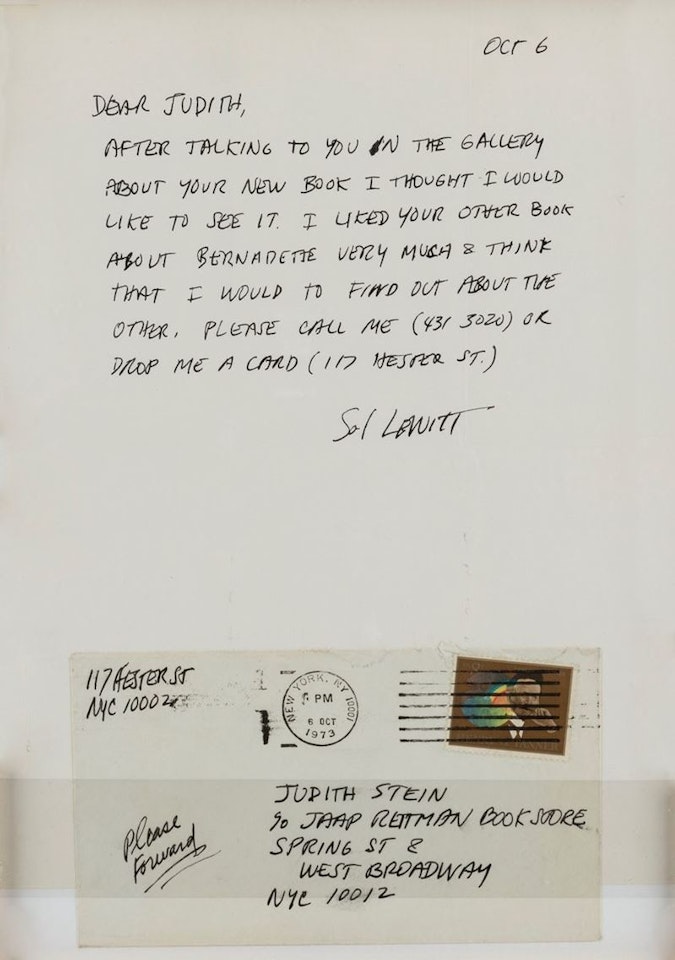 OCT 6
DEAR JUDITH,
AFTER TALKING TO YOU IN THE GALLERY
ABOUT YOUR NEW BOOK I THOUGHT I WOULD
LIKE TO SEE IT. I LIKED YOUR OTHER BOOK
ABOUT BERNADETTE VERY MUCH & THINK
THAT I WOULD TO FIND OUT ABOUT THE
OTHER. PLEASE CALL ME (431 3020) OR
DROP ME A CARD (117 HESTER ST.)
Sol LEWITT
117 HESTER ST
NYC 10002
NEW YORK, NY 10001
PM
6 OCT
1973
JUDITH STEIN
c/o JAAP REITMAN BOOKSTORE
SPRING ST &
WEST BROADWAY
NYC 10012
Please
Forward